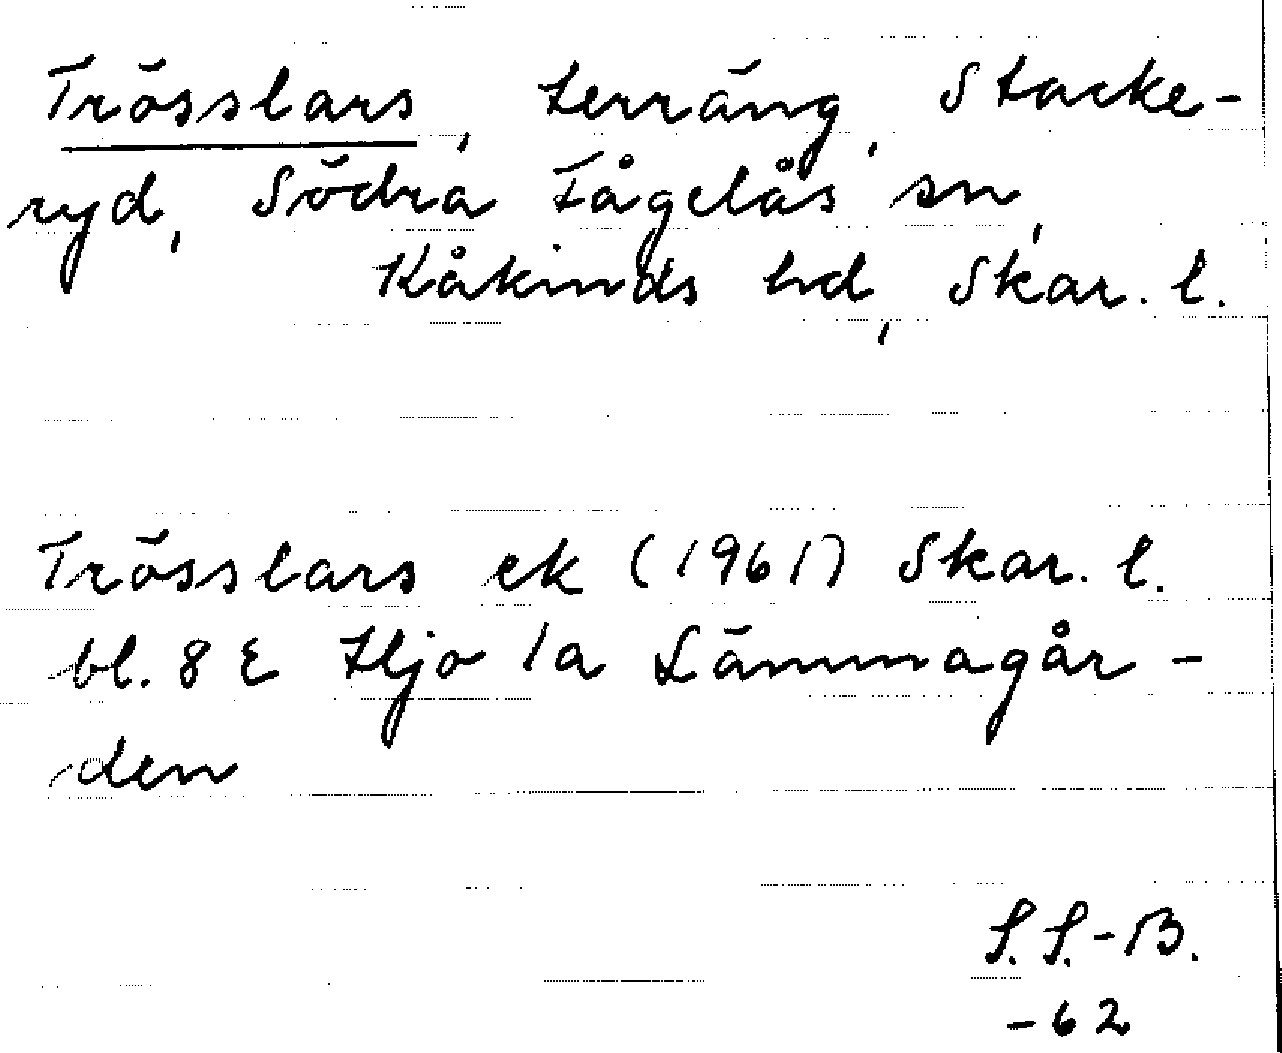 Trösslars, terräng, Stacke-
ryd, Södra Fågelås sn,
Kåkinds hd, Skar. l.
Trösslars ek (1961) Skar. l.
bl. 8 E Hjo 1a Lämmagår-
den
S. S.-B.
-62